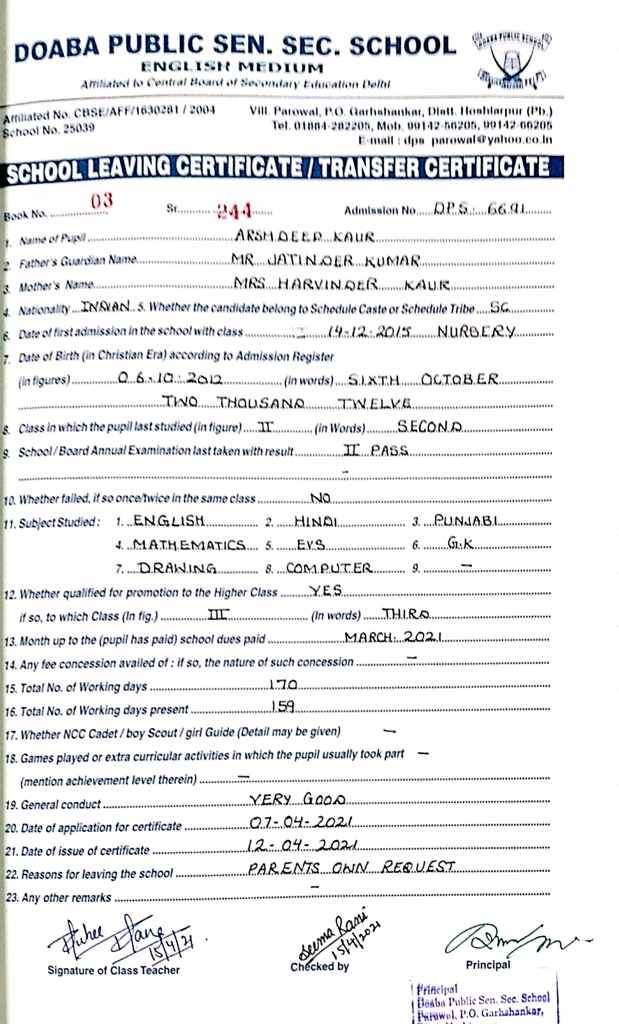 DOABA PUBLIC SEN. SEC. SCHOOL
DOABA PUBLIC SCHOOL
ENGLISH MEDIUM
Affiliated to Central Board of Secondary Education Delhi
Affiliated No. CBSE/AFF/1630281 / 2004
Vill. Parowal, P.O. Garhshankar, Distt. Hoshiarpur (Pb.)
School No. 25039
Tel. 01884-282205, Mob. 99142-56205, 99142-66205
E-mail : dps_parowal@yahoo.co.in
SCHOOL LEAVING CERTIFICATE / TRANSFER CERTIFICATE
Book No. 03 Sr. 244 Admission No. DPS: 6691
1. Name of Pupil ARSHDEEP KAUR
2. Father's Guardian Name MR JATINDER KUMAR
3. Mother's Name MRS HARVINDER KAUR
4. Nationality INDIAN 5. Whether the candidate belong to Schedule Caste or Schedule Tribe SC
6. Date of first admission in the school with class 14-12-2015 NURSERY
7. Date of Birth (in Christian Era) according to Admission Register
(in figures) 06-10-2012 (in words) SIXTH OCTOBER
TWO THOUSAND TWELVE
8. Class in which the pupil last studied (in figure) II (in Words) SECOND
9. School / Board Annual Examination last taken with result II PASS
-
10. Whether failed, if so once/twice in the same class NO
11. Subject Studied : 1. ENGLISH 2. HINDI 3. PUNJABI
4. MATHEMATICS 5. EVS 6. G.K
7. DRAWING 8. COMPUTER 9. -
12. Whether qualified for promotion to the Higher Class YES
if so, to which Class (In fig.) III (In words) THIRD
13. Month up to the (pupil has paid) school dues paid MARCH: 2021
14. Any fee concession availed of : if so, the nature of such concession -
15. Total No. of Working days 170
16. Total No. of Working days present 159
17. Whether NCC Cadet / boy Scout / girl Guide (Detail may be given) -
18. Games played or extra curricular activities in which the pupil usually took part -
(mention achievement level therein) -
19. General conduct VERY GOOD
20. Date of application for certificate 07-04-2021
21. Date of issue of certificate 12-04-2021
22. Reasons for leaving the school PARENTS OWN REQUEST
23. Any other remarks -
15/4/21
Seema Rani
15/4/2021
Signature of Class Teacher Checked by Principal
Principal
Doaba Public Sen. Sec. School
Parowal, P.O. Garhshankar,